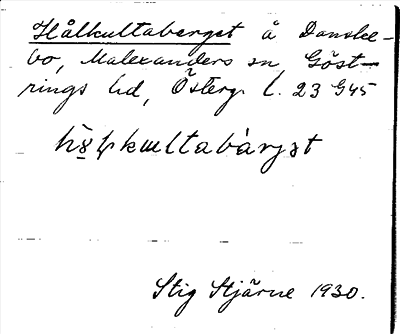 Hålkultaberget å Danskebo, Malexanders sn Göst-
rings hd, Österg. l. 23 G45
Stig Stjärne 1930.